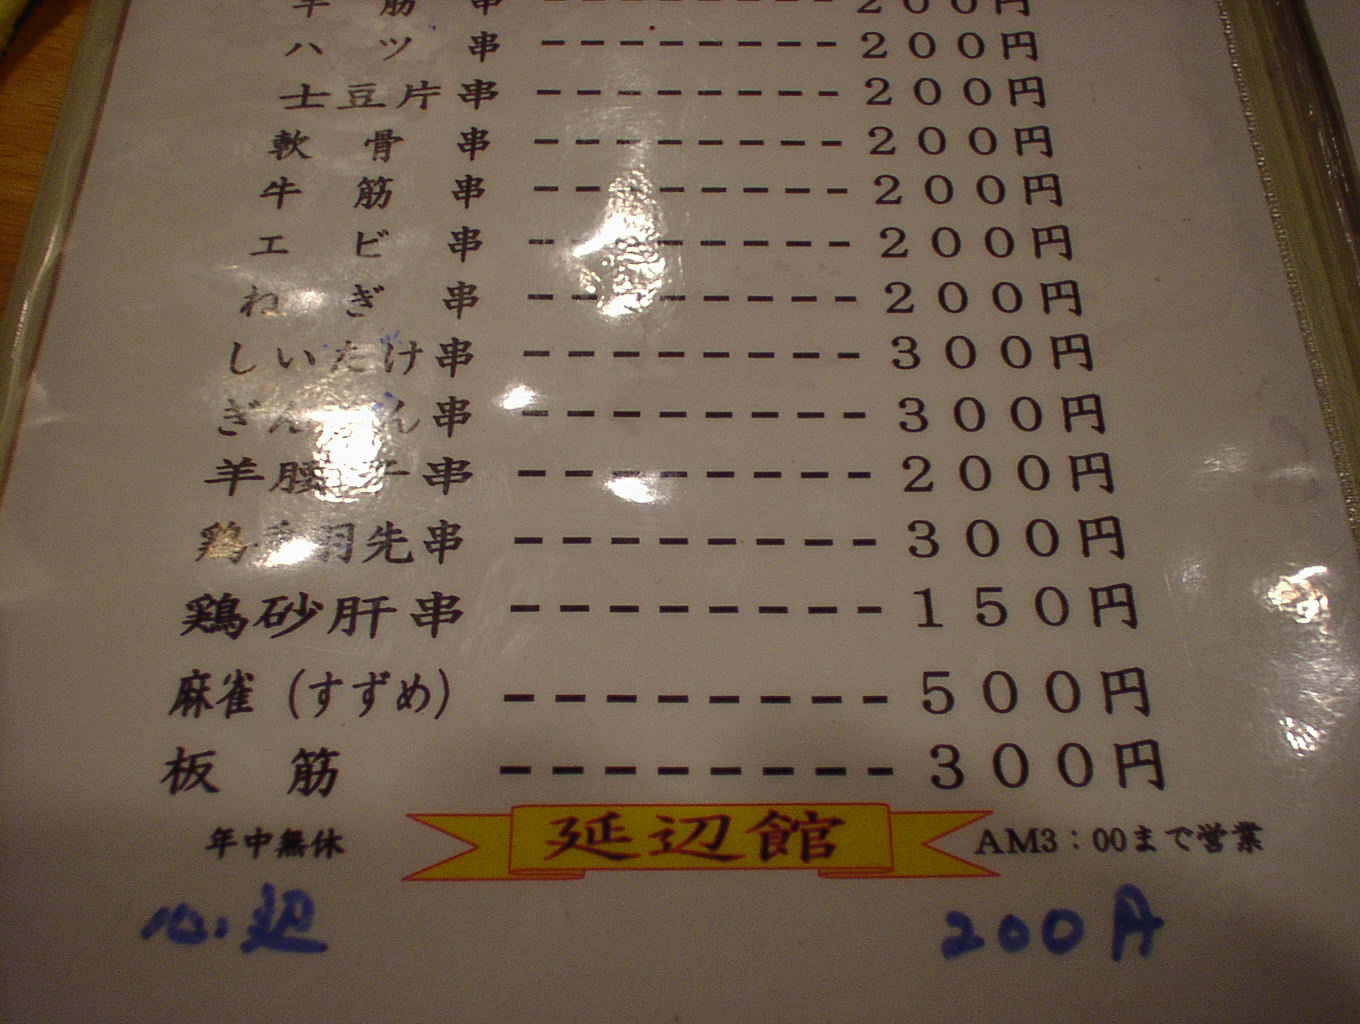 羊 筋 串 -------- 200円
ハ ツ 串 -------- 200円
士豆片串 -------- 200円
軟 骨 串 -------- 200円
牛 筋 串 -------- 200円
エ ビ 串 -------- 200円
ねぎ 串 -------- 200円
しいたけ串 -------- 300円
ぎんなん串 -------- 300円
羊腰子串 -------- 200円
鶏手羽先串 -------- 300円
鶏砂肝串 -------- 150円
麻雀 (すずめ) -------- 500円
板 筋 -------- 300円
年中無休 延辺館 AM3:00まで営業
200円